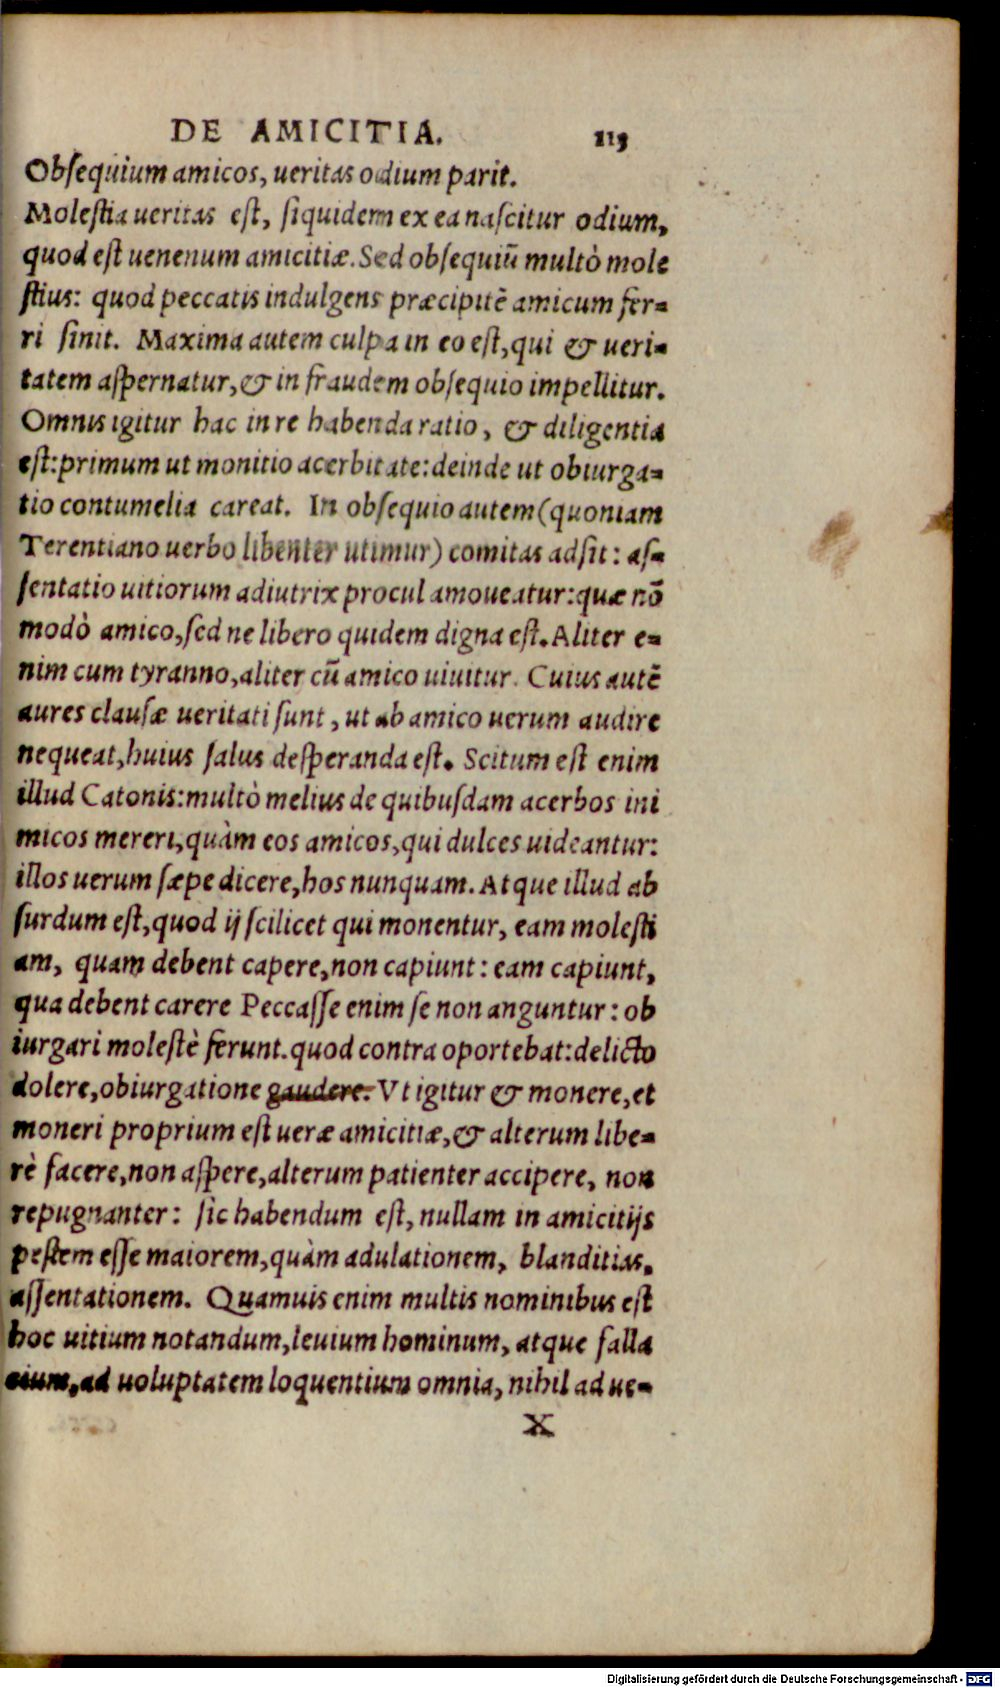 DE AMICITIA. 113
Obſequium amicos, ueritas odium parit.
Moleſtia ueritas eſt, ſiquidem ex ea naſcitur odium,
quod eſt uenenum amicitiæ. Sed obſequiũ multò mole
ſtius: quod peccatis indulgens præcipitẽ amicum fer-
ri ſinit. Maxima autem culpa in eo eſt, qui & ueri-
tatem aſpernatur, & in fraudem obſequio impellitur.
Omnis igitur hac in re habenda ratio, & diligentia
eſt: primum ut monitio acerbitate: deinde ut obiurga-
tio contumelia careat. In obſequio autem (quoniam
Terentiano uerbo libenter utimur) comitas adſit: aſ-
ſentatio uitiorum adiutrix procul amoueatur: quæ nõ
modò amico, ſed ne libero quidem digna eſt. Aliter e-
nim cum tyranno, aliter cũ amico uiuitur. Cuius autẽ
aures clauſæ ueritati ſunt, ut ab amico uerum audire
nequeat, huius ſalus deſperanda eſt. Scitum eſt enim
illud Catonis: multò melius de quibuſdam acerbos ini
micos mereri, quàm eos amicos, qui dulces uideantur:
illos uerum ſæpe dicere, hos nunquam. Atque illud ab
ſurdum eſt, quod ij ſcilicet qui monentur, eam moleſti
am, quam debent capere, non capiunt: eam capiunt,
qua debent carere Peccaſſe enim ſe non anguntur: ob
iurgari moleſtè ferunt. quod contra oportebat: delicto
dolere, obiurgatione gaudere. Vt igitur & monere, et
moneri proprium eſt ueræ amicitiæ, & alterum libe-
rè facere, non aſpere, alterum patienter accipere, non
repugnanter: ſic habendum eſt, nullam in amicitijs
peſtem eſſe maiorem, quàm adulationem, blanditias,
aſſentationem. Quamuis enim multis nominibus eſt
hoc uitium notandum, leuium hominum, atque falla
cium, ad uoluptatem loquentium omnia, nihil ad ue-
X
Digitalisierung gefördert durch die Deutsche Forschungsgemeinschaft - DFG